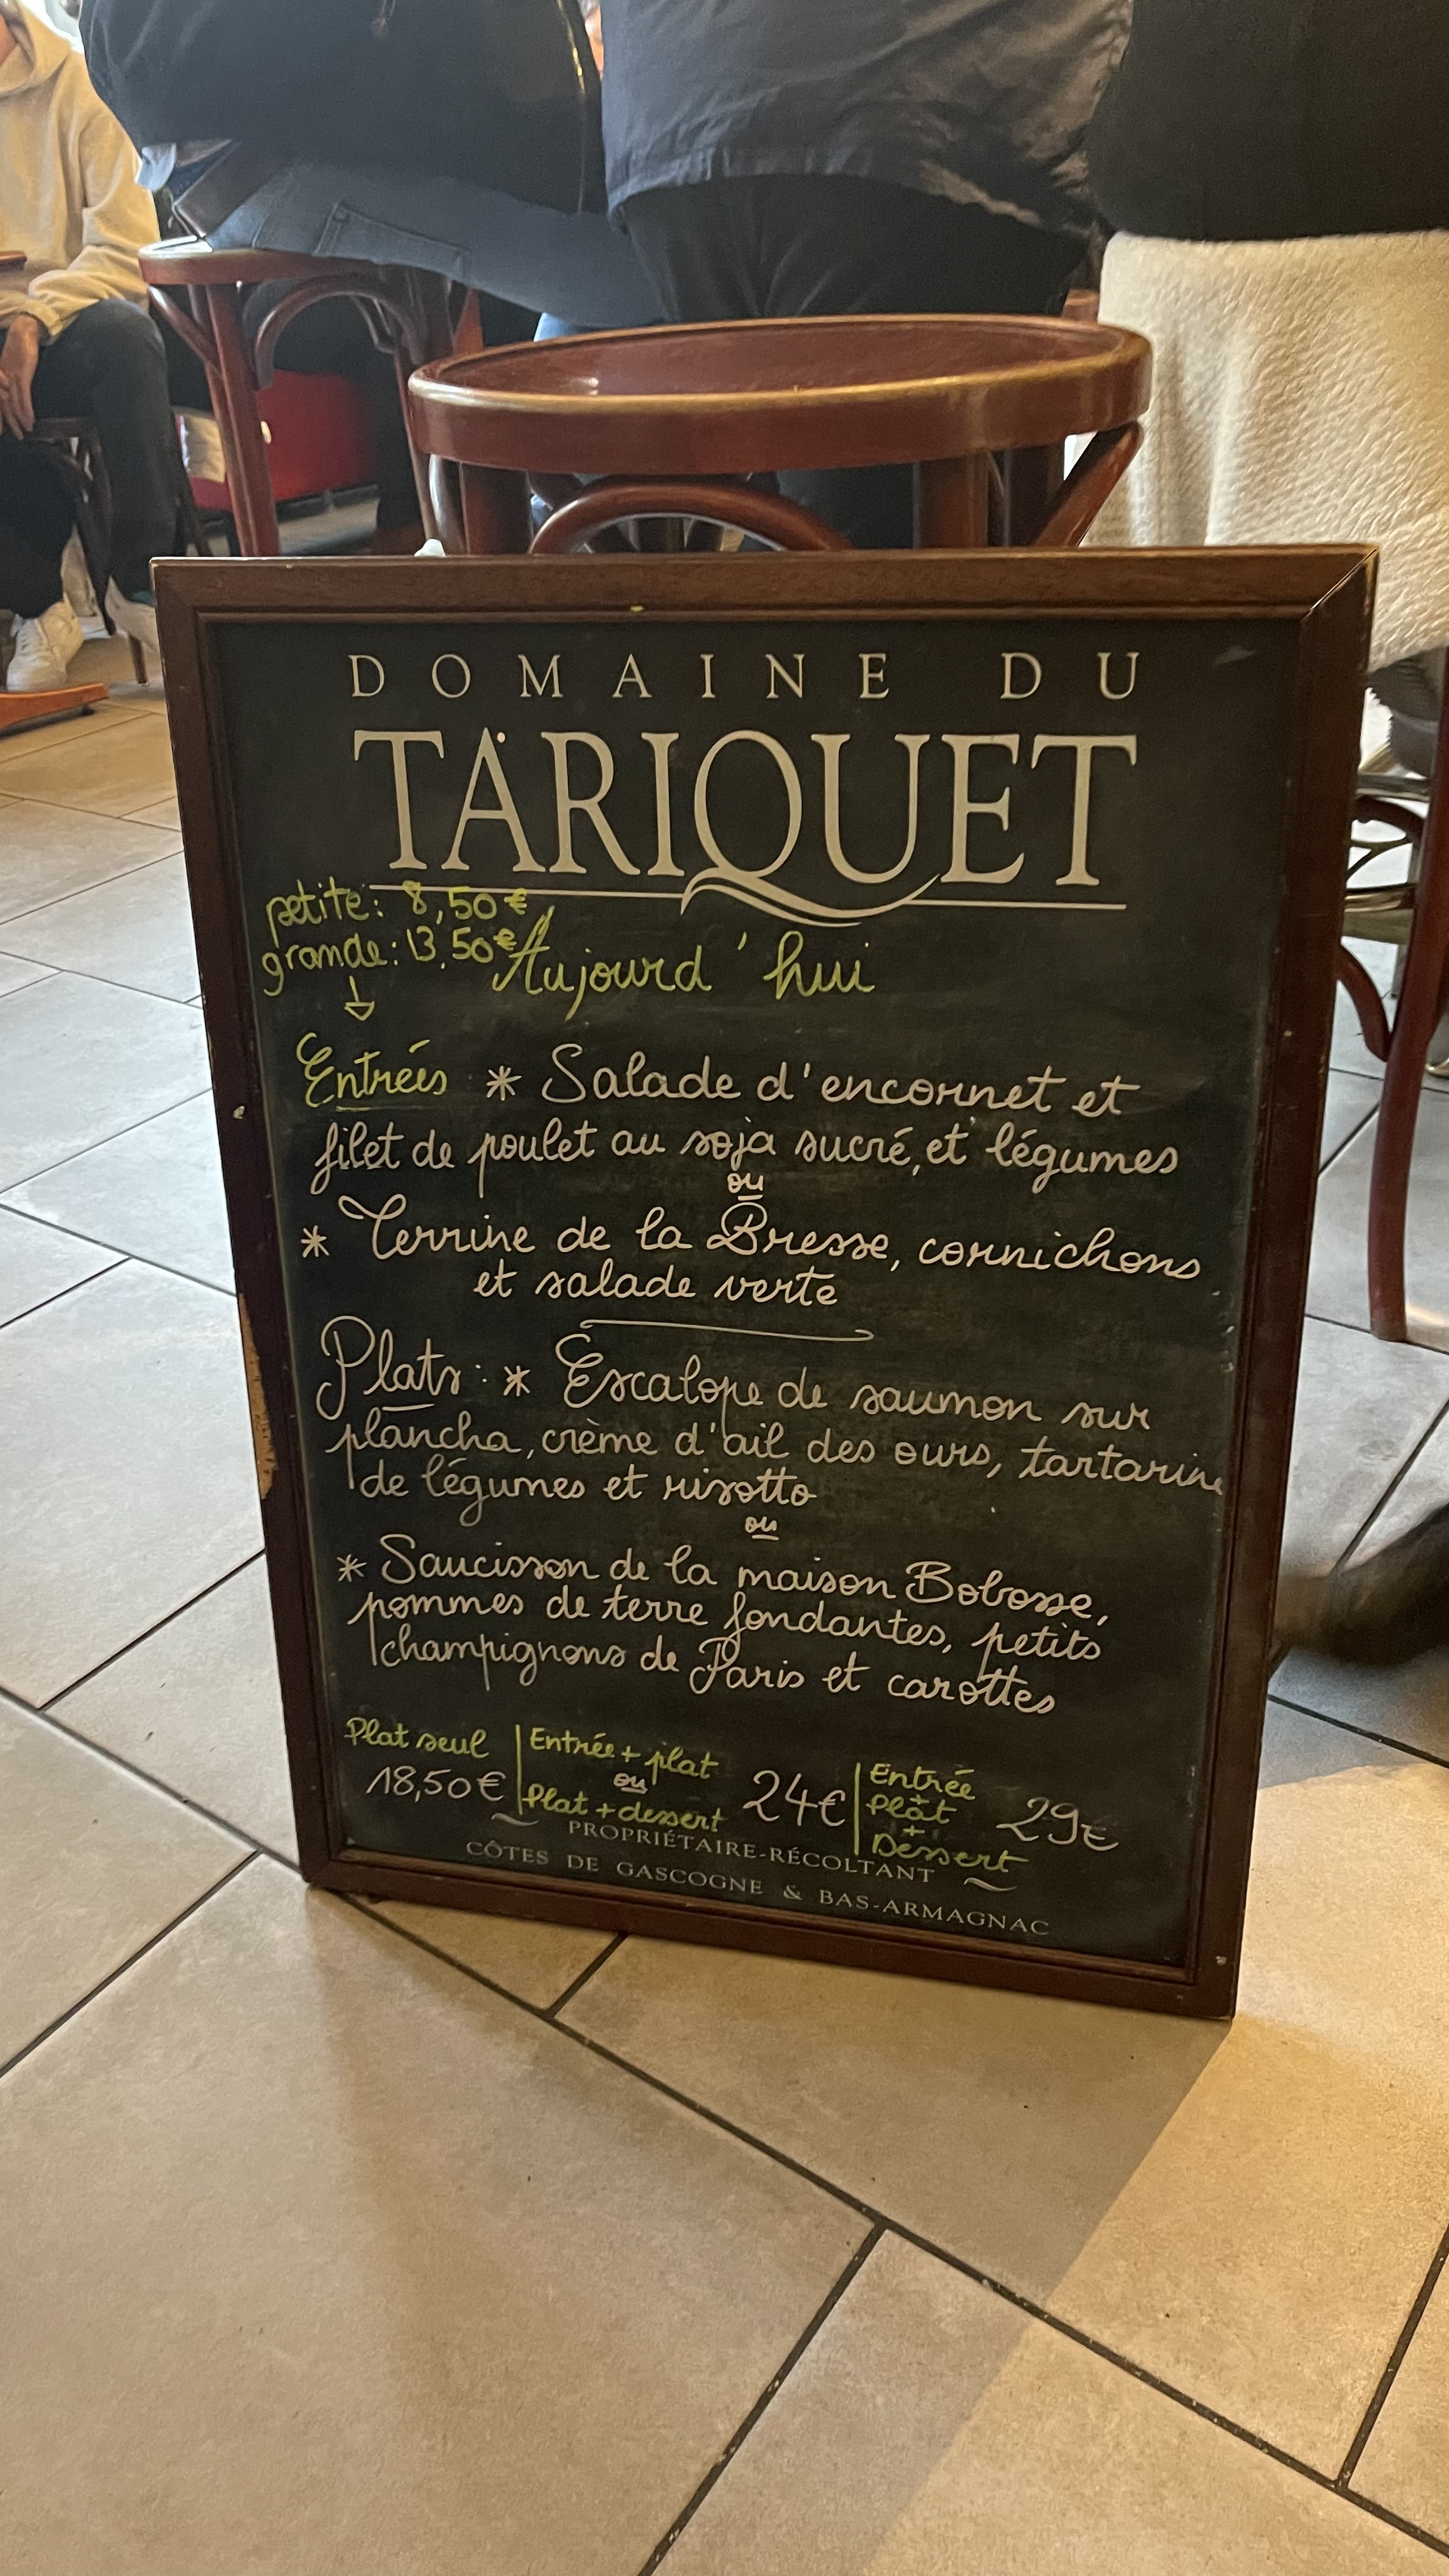 DOMAINE DU
TARIQUET
petite: 8,50€
grande: 13,50€
Aujourd'hui
Entrées * Salade d'encornet et
filet de poulet au soja sucré, et légumes
ou
* Terrine de la Bresse, cornichons
et salade verte
Plats: * Escalope de saumon sur
plancha, crème d'ail des ours, tartarine
de légumes et risotto
ou
* Saucisson de la maison Bobosse,
pommes de terre fondantes, petits
champignons de Paris et carottes
Plat seul
18,50€
Entrée + plat
ou
Plat + dessert
24€
Entrée
+
Plat
+
Dessert
29€
PROPRIÉTAIRE-RÉCOLTANT
CÔTES DE GASCOGNE & BAS-ARMAGNAC